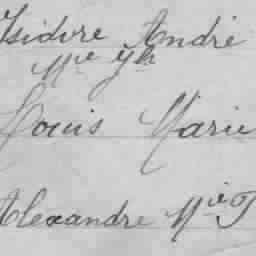 Isidore André
Louis Marie
Alexandre Mie